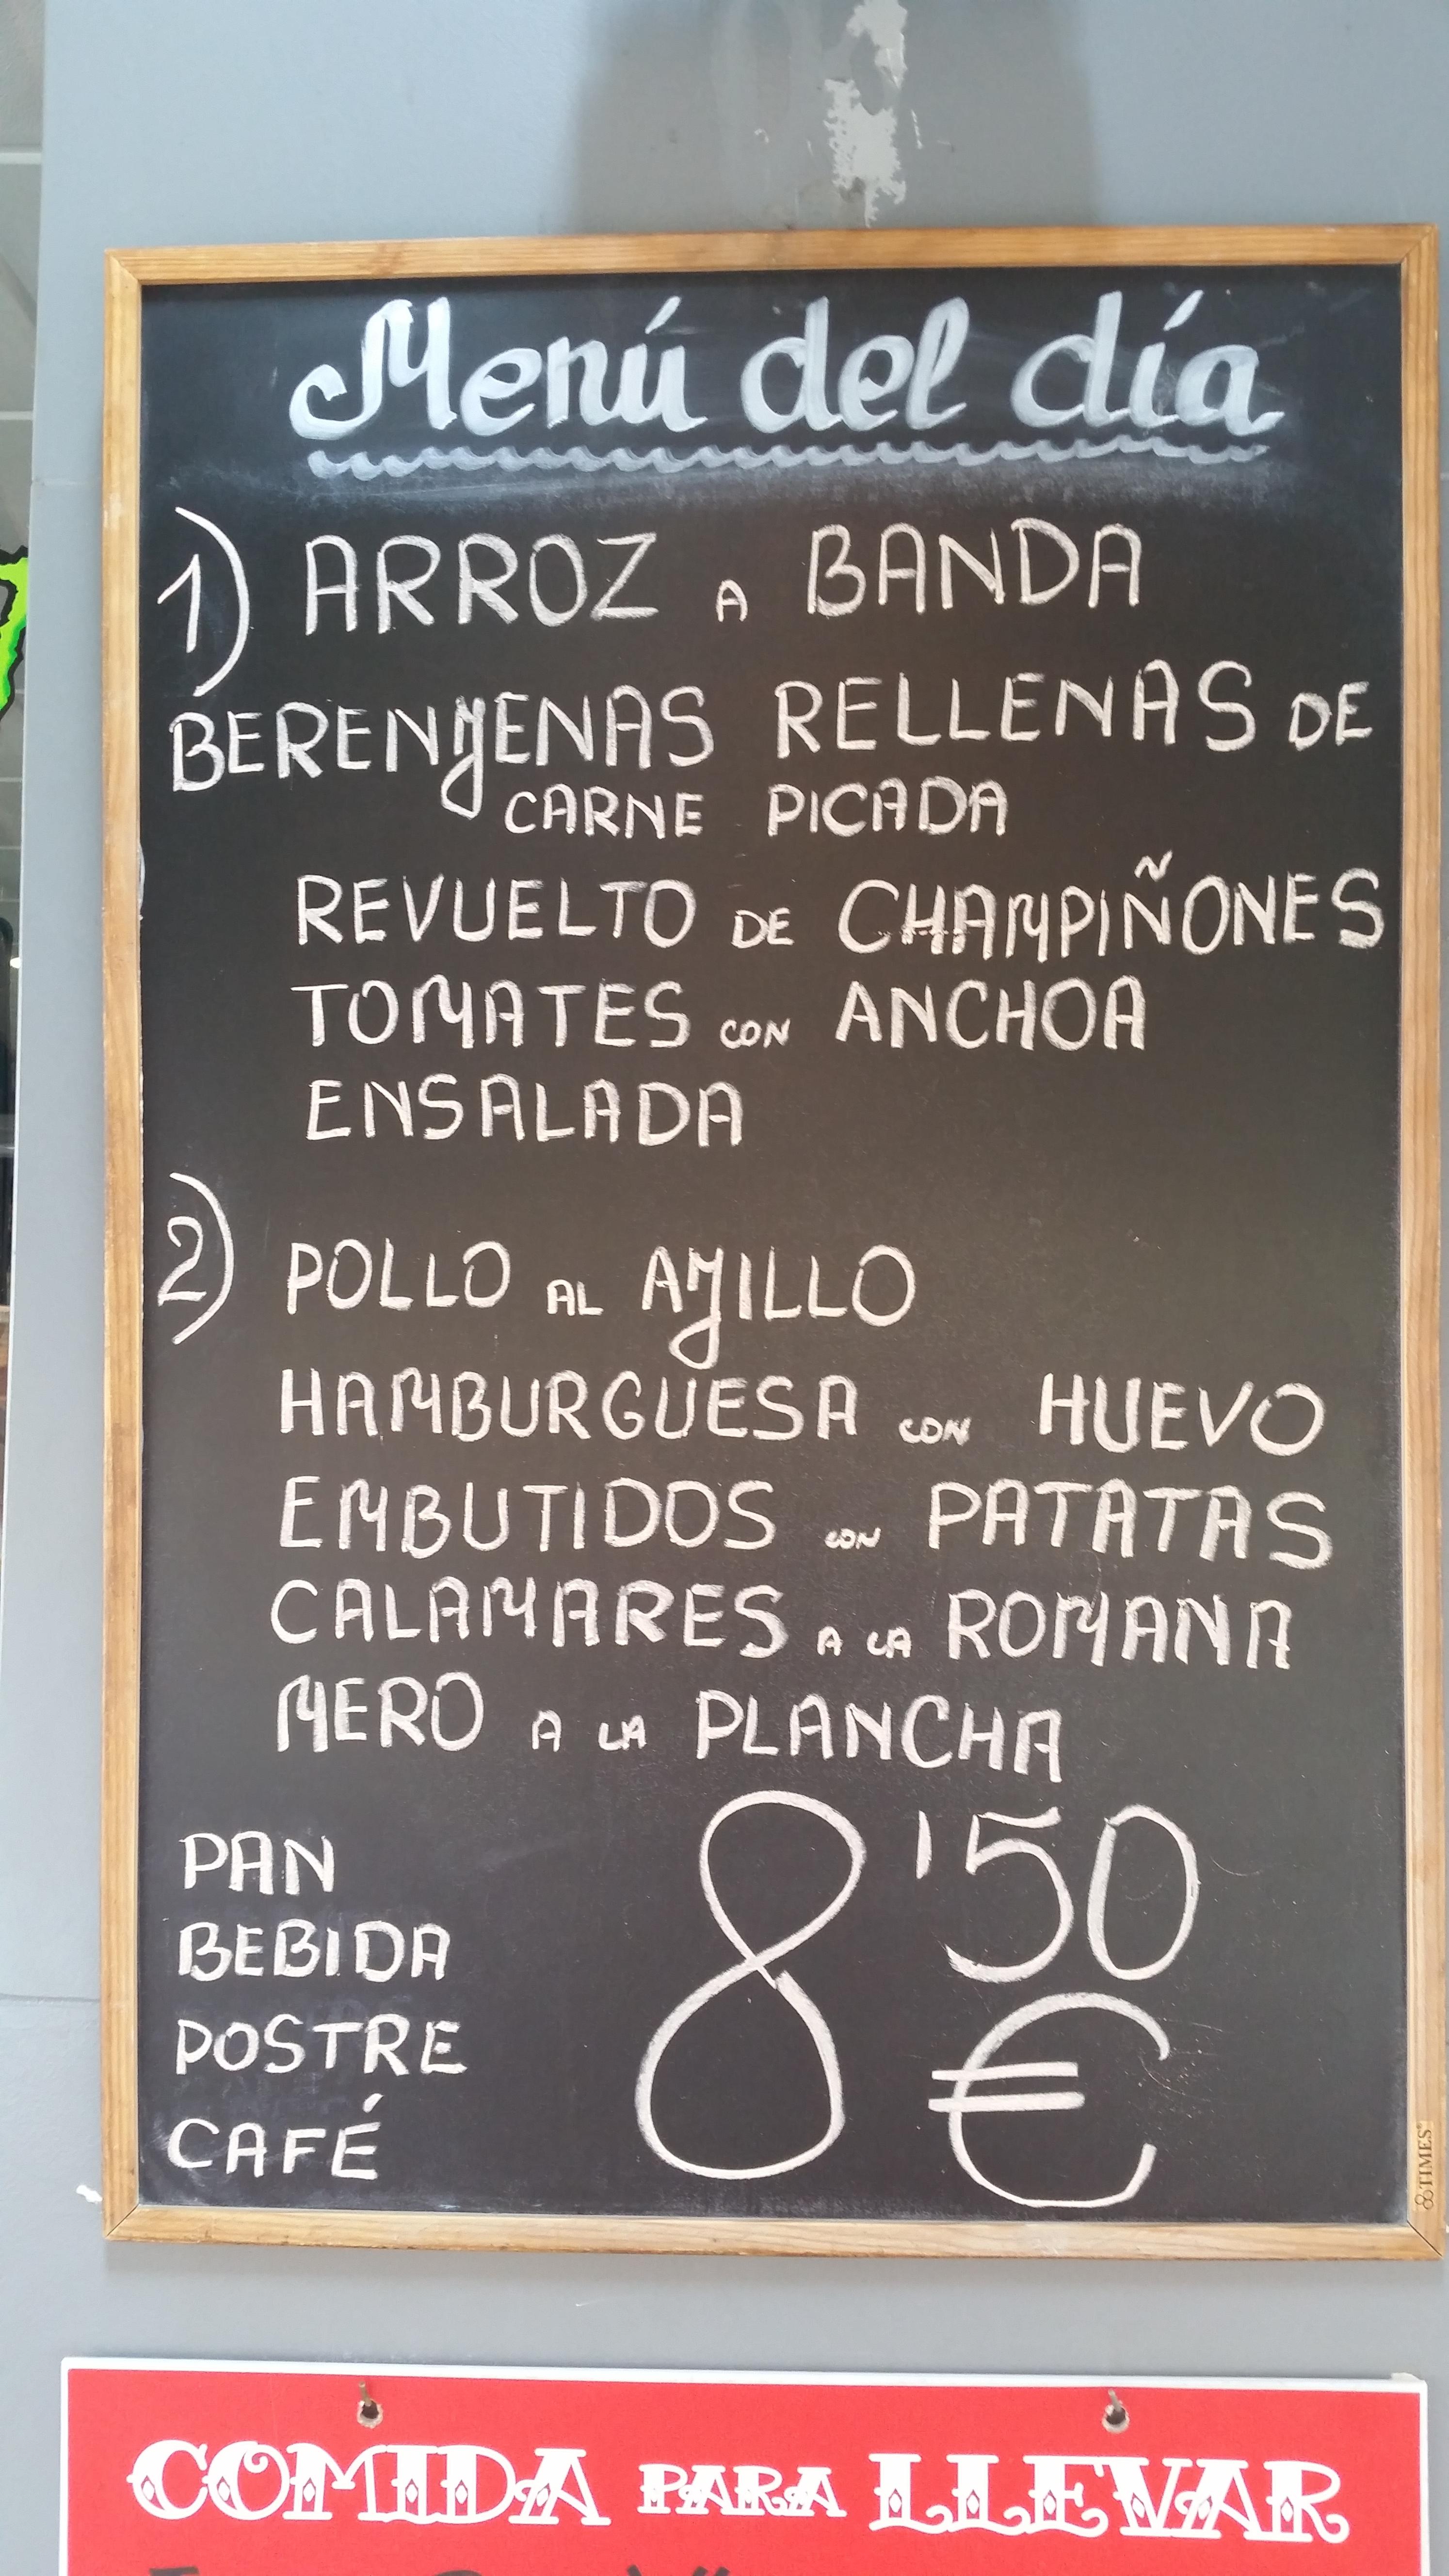 Menú del día
1) ARROZ A BANDA
BERENJENAS RELLENAS DE
CARNE PICADA
REVUELTO DE CHAMPIÑONES
TOMATES CON ANCHOA
ENSALADA
2) POLLO AL AJILLO
HAMBURGUESA CON HUEVO
EMBUTIDOS CON PATATAS
CALAMARES A LA ROMANA
MERO A LA PLANCHA
PAN
BEBIDA
POSTRE
CAFÉ
8'50
€
TIMES
COMIDA PARA LLEVAR